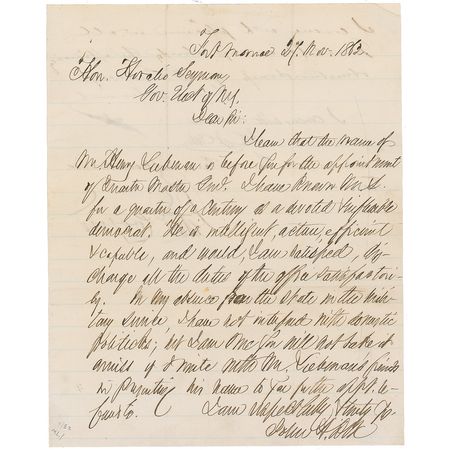 Fort Monroe 27. Nov. 1862
Hon. Horatio Seymour,
Gov. Elect of N.Y.
Dear Sir:
I learn that the name of
Mr. Henry Lieberman is before you for the appointment
of Quarter Master Genl. I have known Mr. L.
for a quarter of a century as a devoted & inflexible
democrat. He is intelligent, active, efficient
& capable, and would, I am satisfied, dis-
charge all the duties of the office satisfactori-
ly. In my absence from the State in the mili-
tary service I have not interfered with domestic
politics; but I am sure you will not take it
amiss if I unite with Mr. Lieberman's friends
in presenting his name to you
I am respectfully & truly Yrs
John A. Dix